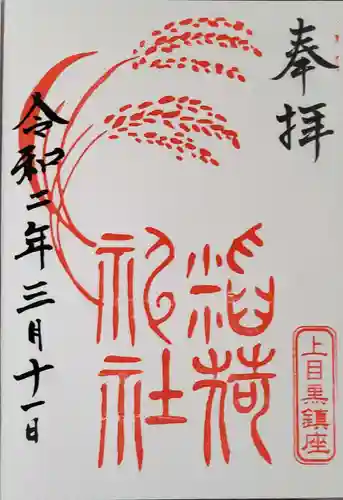 奉拝
上目黒鎮座
稲荷
祀社
令和二年三月十一日